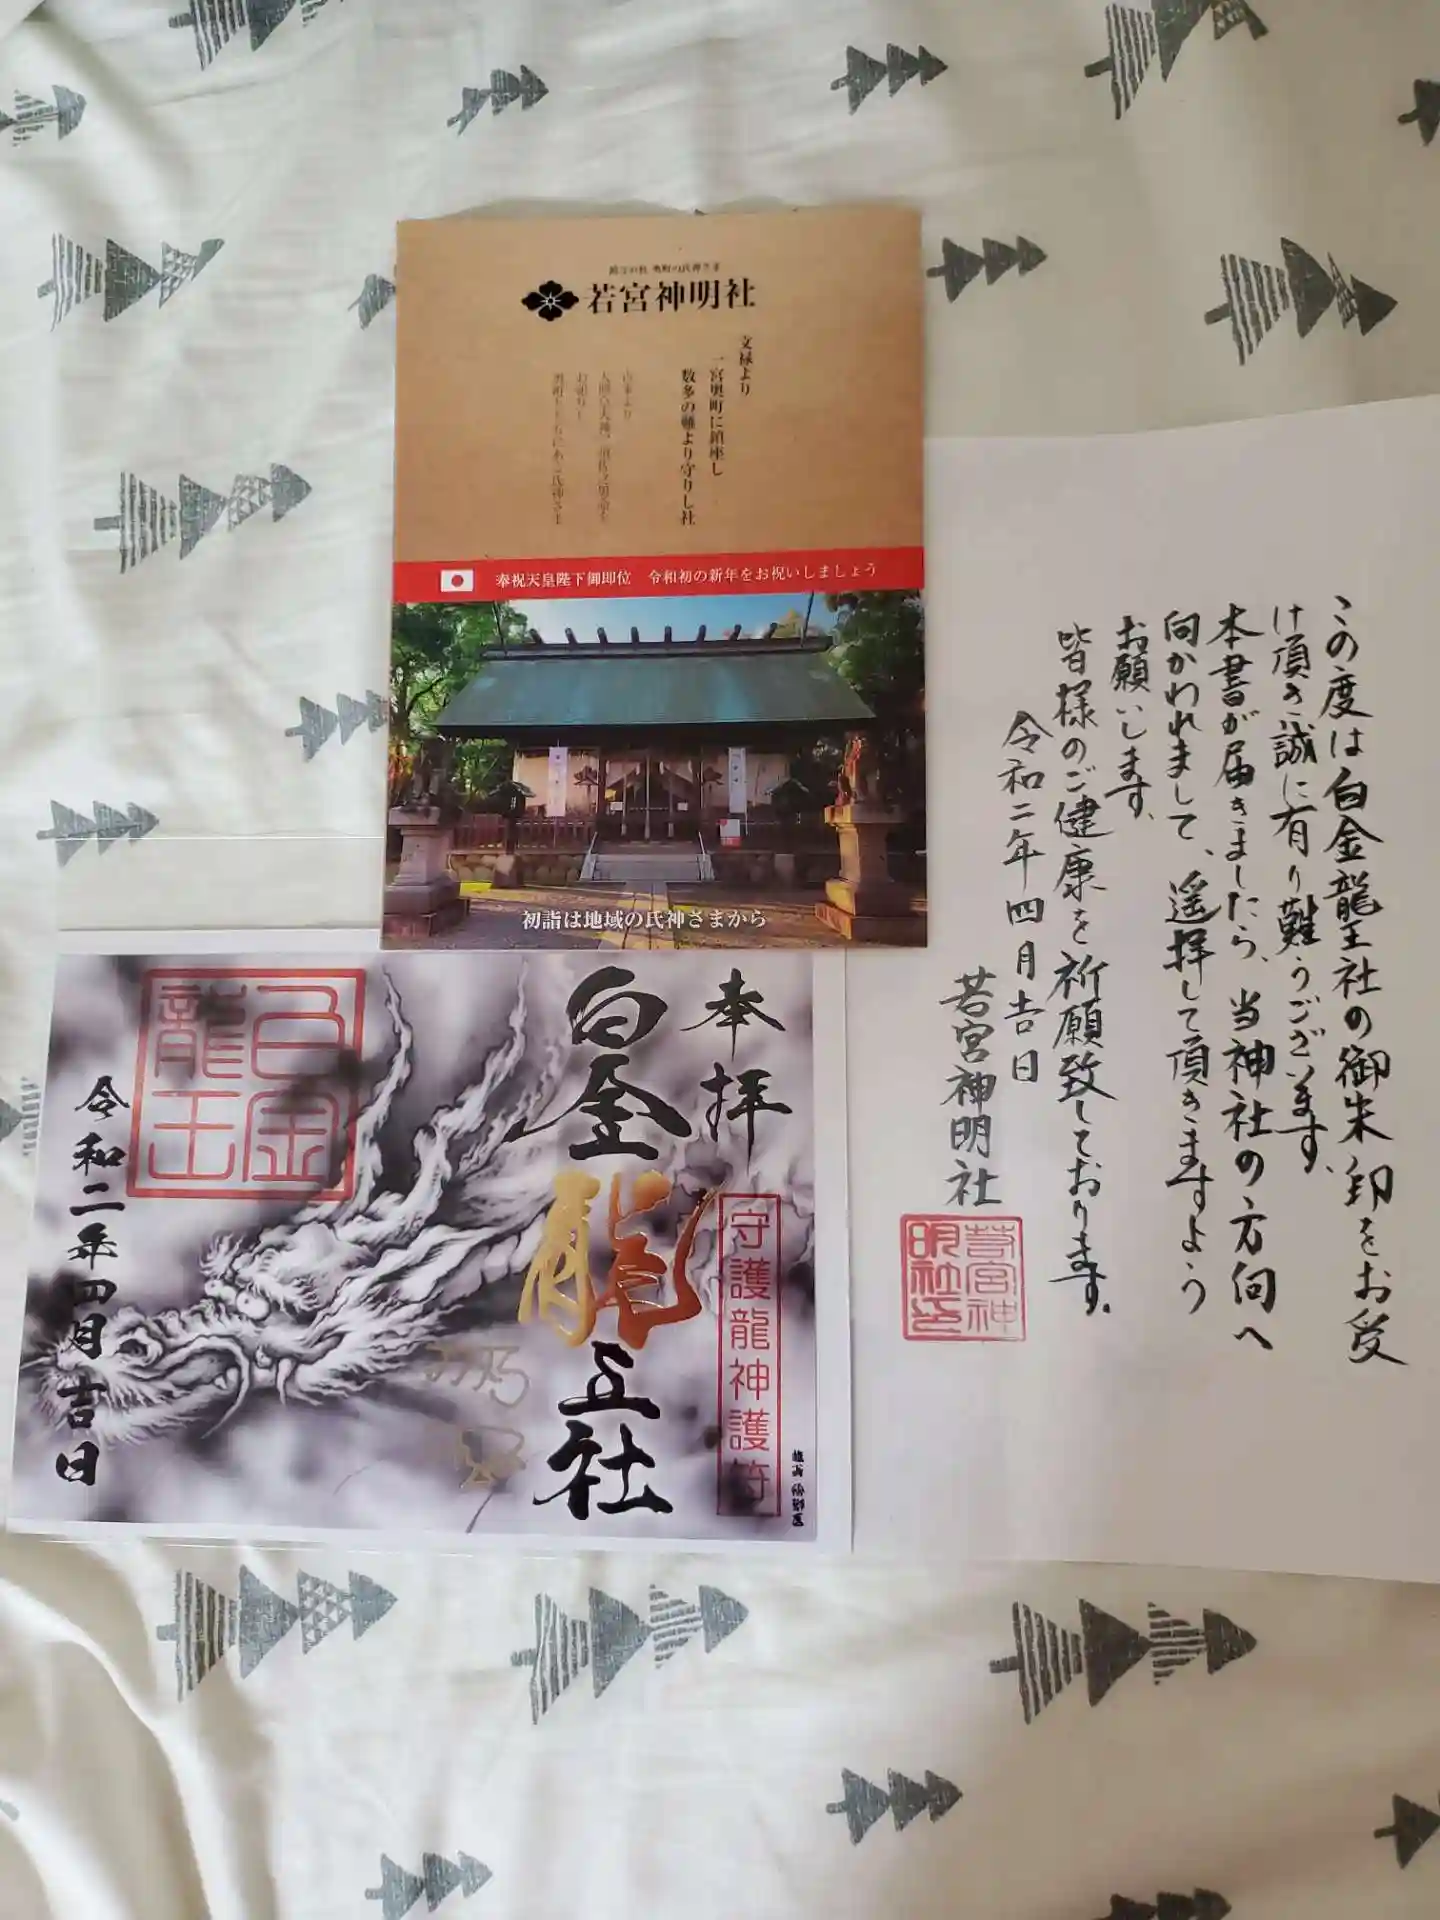 若宮神明社
文禄より
一宮奥町に鎮座し
数多の難より守りし社
古来より
奉祝天皇陛下御即位 令和初の新年をお祝いしましょう
初詣は地域の氏神さまから
この度は白金龍王社の御朱印をお受
け頂き誠に有り難うございます。
本書が届きましたら、当神社の方向へ
向かわれまして、遥拝して頂きますよう
お願いします。
皆様のご健康を祈願致しております。
令和二年四月吉日
若宮神明社
若宮神
明社印
奉拝
白金龍王社
守護龍神護符
白金
龍王
令和二年四月吉日